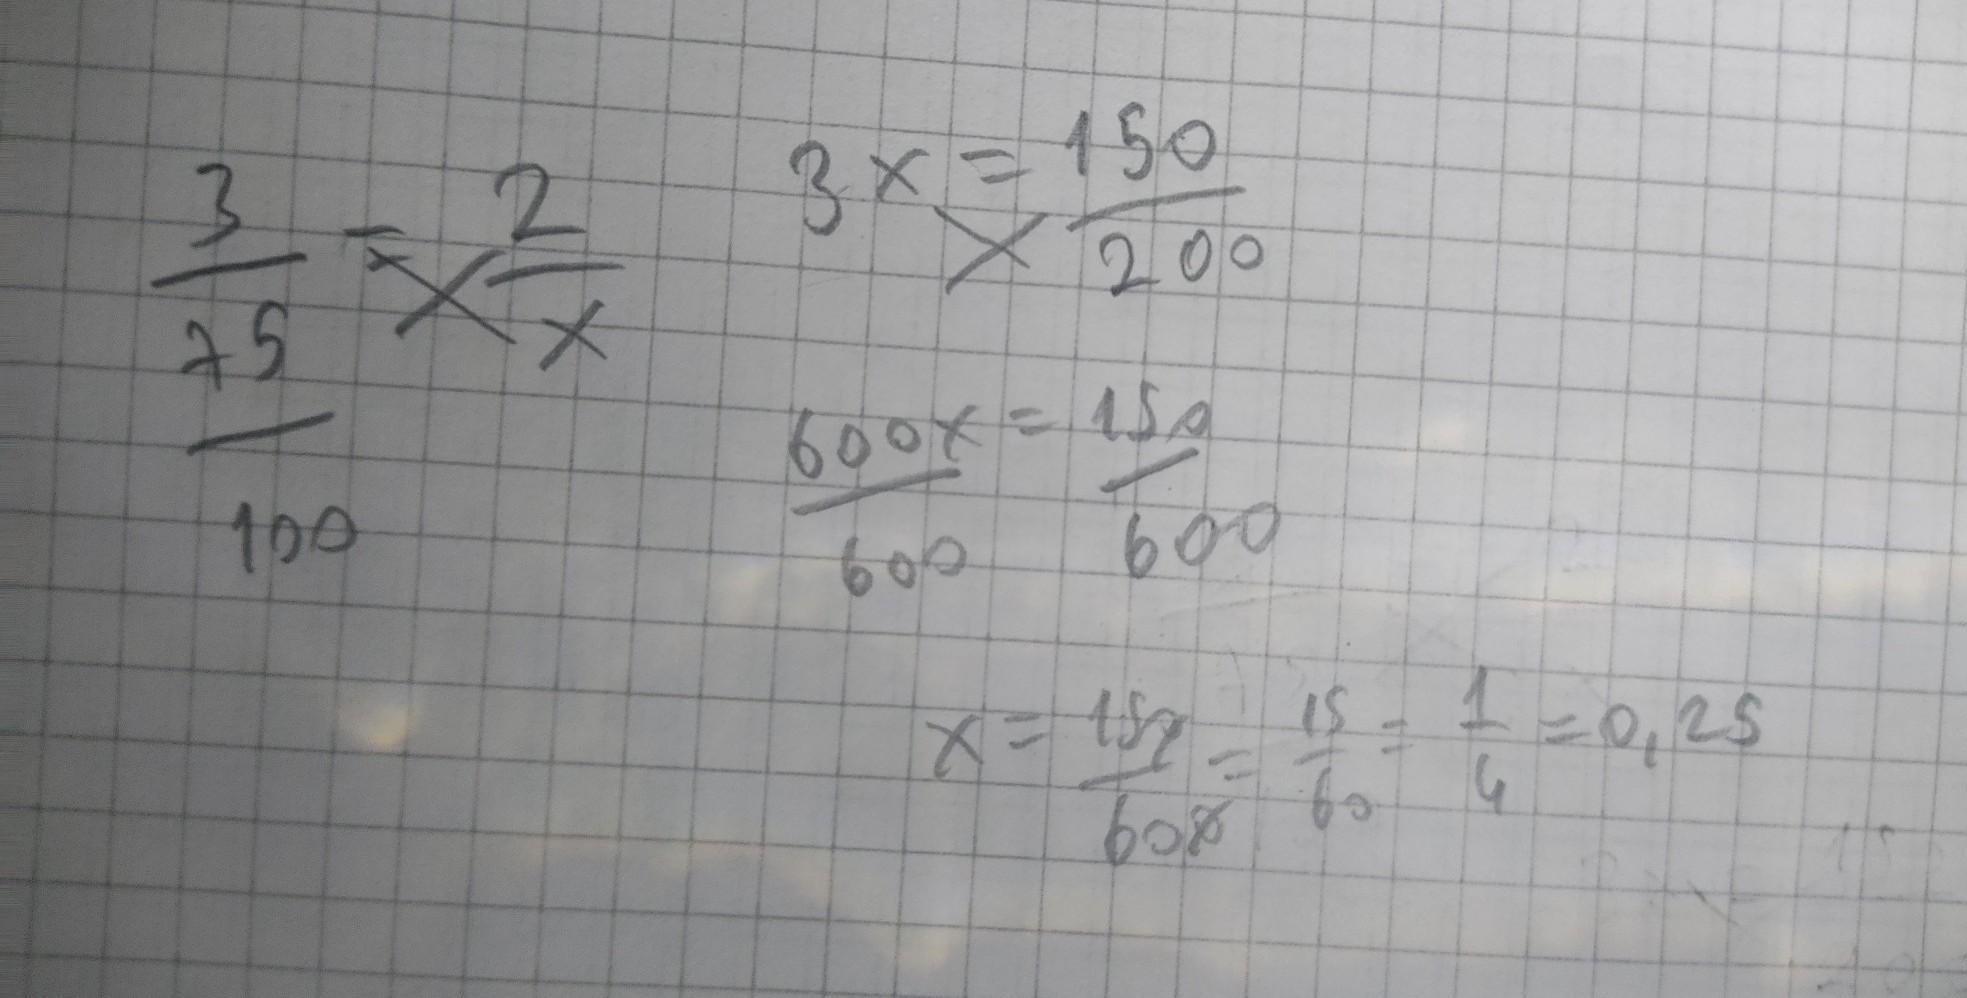 3/75/100 = 2/x
3x = 150/200
600x/600 = 150/600
x = 150/600 = 15/60 = 1/4 = 0,25